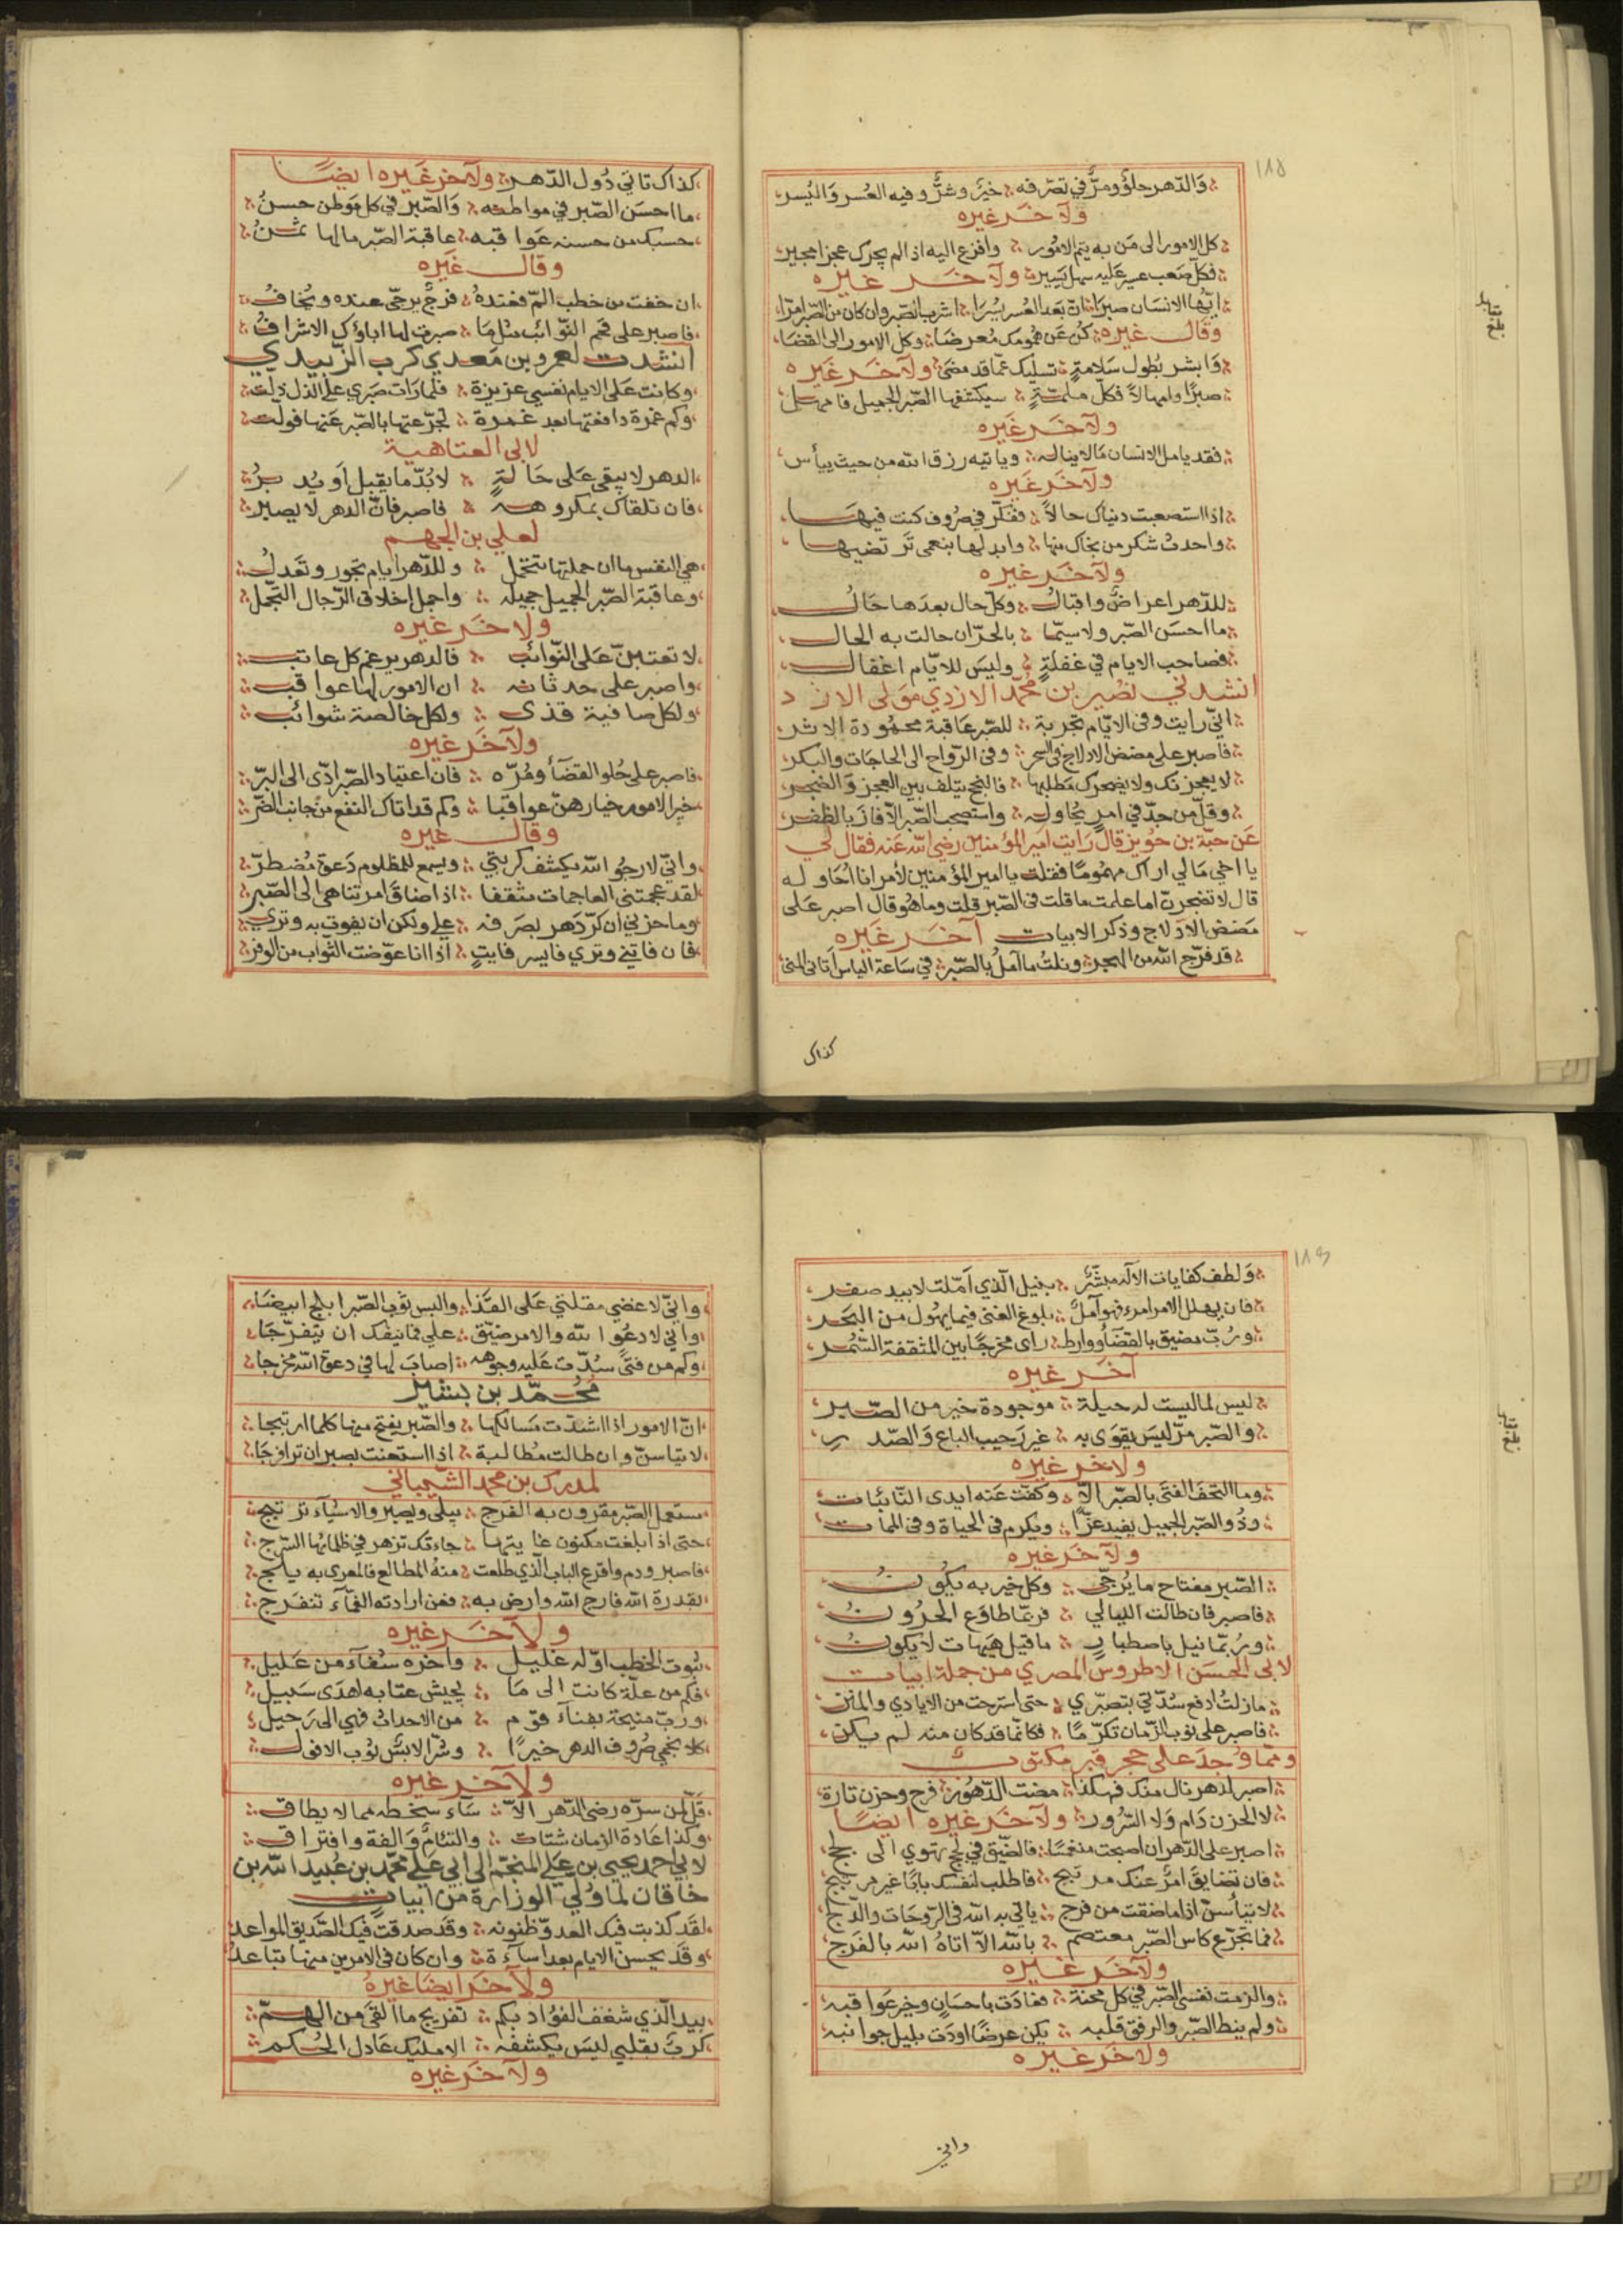 ١٨٥
والدهر حلو ومر في تصرفه خير وشر وفيه العسر واليسر
ولآخر غيره
كل الامور الى من به يتم الامور وافزع اليه اذا لم يجرك عجزا مجير
فكل صعب عسير عليه سهل يسير ولآخر غيره
ايها الانسان صبرا ان بعد العسر يسرا اشرب الصبر وان كان من الصبر امرا
وقال غيره كن عن همومك معرضا وكل الامور الى القضا
وابشر بطول سلامة تسليك عما قد مضى ولآخر غيره
صبرا وامهالا فكل ملمة سيكشفها الصبر الجميل فامهل
ولآخر غيره
فقد يامل الانسان مالا يناله وياتيه رزق الله من حيث ييأس
ولآخر غيره
اذا استصعبت دنياك حالا ففكر في صروف كنت فيها
واحدث شكر من نجاك منها وابدلها بنعمى ترتضيها
ولآخر غيره
للدهر اعراض واقبال وكل حال بعدها حال
ما احسن الصبر ولا سيما بالحر ان حالت به الحال
فصاحب الايام في غفلة وليس للايام اغفال
انشدني نصير بن محمد الازدي مولى الازد
اني رايت وفى الايام تجربة للصبر عاقبة محمودة الاثر
فاصبر على مضض الادلاج في السحر وفى الرواح الى الحاجات والبكر
لا يعجزنك ولا يضجرك مطلبها فالنجح يتلف بين العجز والضجر
وقل من جد في امر يحاوله واستصحب الصبر الا فاز بالظفر
عن حبة بن جوين قال رايت امير المؤمنين رضي الله عنه فقال لي
يا اخي مالي اراك مهموما فقلت يا امير المؤمنين لأمر انا احاوله
قال لا تضجرن اما علمت ما قلت فى الصبر قلت وما هو قال اصبر على
مضض الادلاج وذكر الابيات آخر غيره
قد فرج الله من الهجر ونلت ما آمل بالصبر في ساعة الياس اتاني المنى
كذاك
كذاك تاتي دول الدهر ولآخر غيره ايضا
ما احسن الصبر في مواطنه والصبر في كل موطن حسن
حسبك من حسنه عواقبه عاقبة الصبر مالها ثمن
وقال غيره
ان خفت من خطب الم فعنده فرج يرجى عنده ويخاف
فاصبر على قحم النوائب مثلما صبرت لها اباؤك الاشراف
انشدت لعمرو بن معدي كرب الزبيدي
وكانت على الايام نفسي عزيزة فلما رات صبري على الذل ذلت
وكم غمرة دافعتها بعد غمرة تجرعتها بالصبر عنها فولت
لابى العتاهية
الدهر لا يبقى على حالة لا بد ما يقبل او يدبر
فان تلقاك بمكروهه فاصبر فان الدهر لا يصبر
لعلي بن الجهم
هي النفس ما ان حملتها تتحمل وللدهر ايام تجور وتعدل
وعاقبة الصبر الجميل جميله واجمل اخلاق الرجال التجمل
ولآخر غيره
لا تعتبن على النوائب فالدهر يرغم كل عاتب
واصبر على حدثانه ان الامور لها عواقب
ولكل صافية قذى ولكل خالصة شوائب
ولآخر غيره
فاصبر على حلو القضآء ومره فان اعتياد الصبر ادى الى البر
خير الامور خيارهن عواقبا وكم قد اتاك النفع من جانب الضر
وقال غيره
واني لارجو الله يكشف كربتي ويسمع للمظلوم دعوة مضطر
لقد عجمتني العاجمات مثقفا اذا ضاق امر تناهى الى الصبر
وما حزني ان كر دهر بصرفه علي ولكن ان يفوت به وتري
فان فاتني وتري فايسر فايت اذا انا عوضت الثواب من الوفر
١٨٦
ولطف كفايات الآله مبشر بنيل الذي املت لابيد صفر
فان يهلل الامر امرء فهو آمل بلوغ الغنى فيما يهول من البحر
ورب مضيق بالقضآء ووارط راى مخرجا بين المثقفة السمر
آخر غيره
ليس لما ليست له حيلة موجودة خير من الصبر
والصبر مر ليس يقوى به غير رحيب الباع والصدر
ولآخر غيره
وما التحف الفتى بالصبر الا وكفت عنه ايدى النائبات
وذو الصبر الجميل يفيد عزا ويكرم فى الحياة وفى الممات
ولآخر غيره
الصبر مفتاح ما يرجى وكل خير به يكون
فاصبر فان طالت الليالي فربما طاوع الحرون
وربما نيل باصطبار ما قيل هيهات لا يكون
لابى الحسن الاطروس المصري من جملة ابيات
مازلت ادفع شدتي بتصبري حتى استرحت من الايادي والمنن
فاصبر على نوب الزمان تكرما فكانما قد كان منه لم يكن
ومما وجد على حجر قبر مكتوب
اصبر لدهر نال منك فهكذا مضت الدهور فرح وحزن تارة
لا الحزن دام ولا السرور ولآخر غيره ايضا
اصبر على الدهر ان اصبحت منغمسا فالضيق في لجج تهوي الى لجج
فان تضايق امر عنك مرتبج فاطلب لنفسك بابا غير مرتبج
لا تيأسن اذا ما ضقت من فرج ياتي به الله فى الروحات والدلج
فما تجرع كاس الصبر معتصم بالله الا اتاه الله بالفرج
ولآخر غيره
والزمت نفسى الصبر في كل محنة فعادت باحسان وخير عواقبه
ولم ينط الصبر والرفق قلبه يكن عرضا اودت بليل جوانبه
ولآخر غيره
واني
واني لاغضي مقلتي على القذا والبس ثوب الصبر ابلج ابيضا
واني لادعو الله والامر ضيق علي فما ينفك ان يتفرجا
وكم من فتى سدت عليه وجوهه اصاب لها في دعوة الله مخرجا
محمد بن بشير
ان الامور اذا اشتدت مسالكها والصبر يفتح منها كلما ارتبجا
لا تياسن وان طالت مطالبة اذا استعنت بصبر ان ترا فرجا
لمدرك بن محمد الشيباني
مستعمل الصبر مقرون به الفرج يبلى ويصبر والاشيآء ترتبج
حتى اذا بلغت مكنون غايتها جاءتك تزهر في ظلمائها السرج
فاصبر ودم واقرع الباب الذي طلعت منه المطالع فالمعرى به يلج
بقدرة الله فارج الله وارض به فعن ارادته الغمآء تنفرج
ولآخر غيره
ثبوت الخطب اوله غليل وآخره شفآء من غليل
فكم من علة كانت الى ما يجيش عتابه اهدى سبيل
ورب منيحة بفنآء قوم من الاحداث فهي الى رحيل
صروف الدهر خيرا وشرا
ولآخر غيره
قل لمن سره رضى الدهر الا سآء سخطه مما لا يطاق
وكذا عادة الزمان شتات والتئام والفة وافتراق
لابي احمد يحيى بن علي المنجم الى ابي علي محمد بن عبيد الله بن
خاقان لما ولي الوزارة من ابيات
لقد كذبت فيك العدو ظنونه وقد صدقت فيك الصديق المواعد
وقد يحسن الايام بعد اسآءة وان كان فى الامرين منها تباعد
ولآخر ايضا غيره
بيد الذي شغف الفؤاد بكم تفريج ما القى من الهم
كرب بقلبي ليس يكشفه الا مليك عادل الحكم
ولآخر غيره